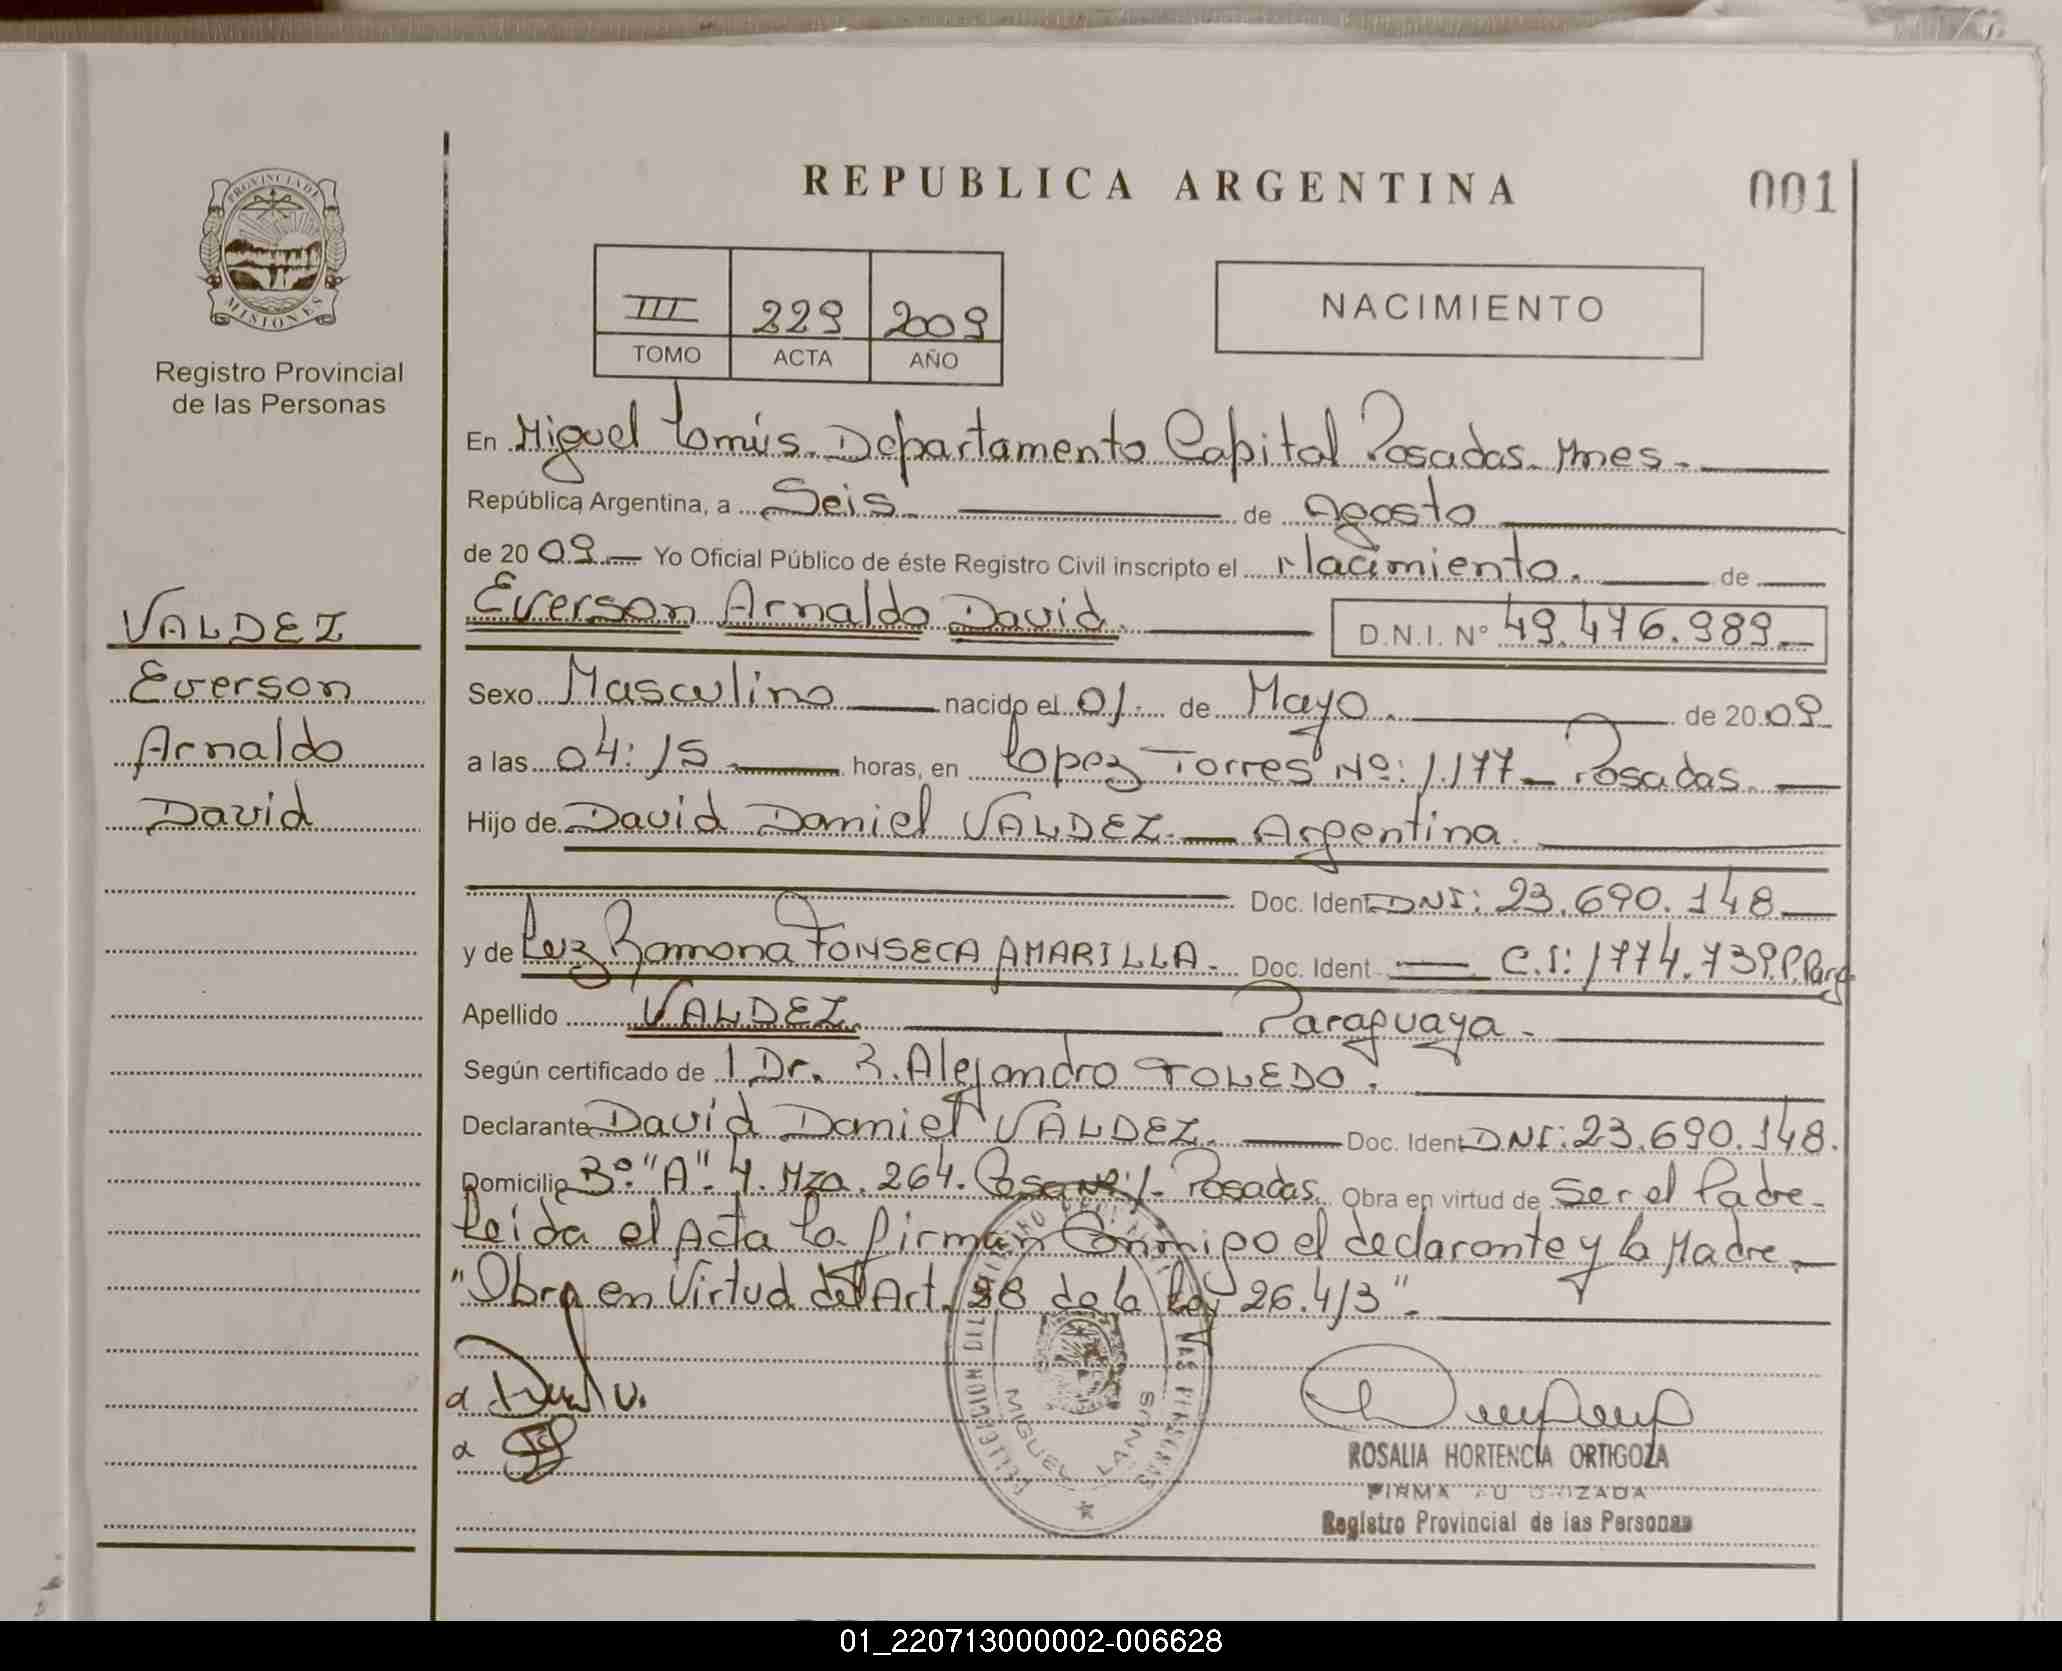 REPUBLICA ARGENTINA
001
PROVINCIA DE
MISIONES
Registro Provincial
de las Personas
III 229 2009
TOMO ACTA AÑO
NACIMIENTO
En Miguel Lanús. Departamento Capital Posadas. Mnes.
República Argentina, a Seis de agosto
de 20 09 Yo Oficial Público de éste Registro Civil inscripto el Nacimiento. de
Everson Arnaldo David. D.N.I. Nº 49.476.989
VALDEZ
Everson
Arnaldo
David
Sexo Masculino nacido el 01. de Mayo. de 20 09
a las 04:15 horas, en Lopez Torres Nº: 1.177 Posadas.
Hijo de David Daniel VALDEZ. Argentina.
Doc. Ident DNI: 23.690.148
y de Luz Ramona FONSECA AMARILLA. Doc. Ident C.I: 1774.739.P.Parg.
Apellido VALDEZ. Paraguaya.
Según certificado de 1 Dr. R. Alejandro TOLEDO.
Declarante David Daniel VALDEZ. Doc. Ident DNI: 23.690.148.
Domicilio Bº. "A". 4. Mza. 264. Posadas. Obra en virtud de Ser el Padre
Leida el Acta la firman Conmigo el declarante y la Madre
"Obra en Virtud del Art. 28 de la Ley 26.413".
MIGUEL LANUS
ROSALIA HORTENCIA ORTIGOZA
FIRMA AUTORIZADA
Registro Provincial de las Personas
01_220713000002-006628